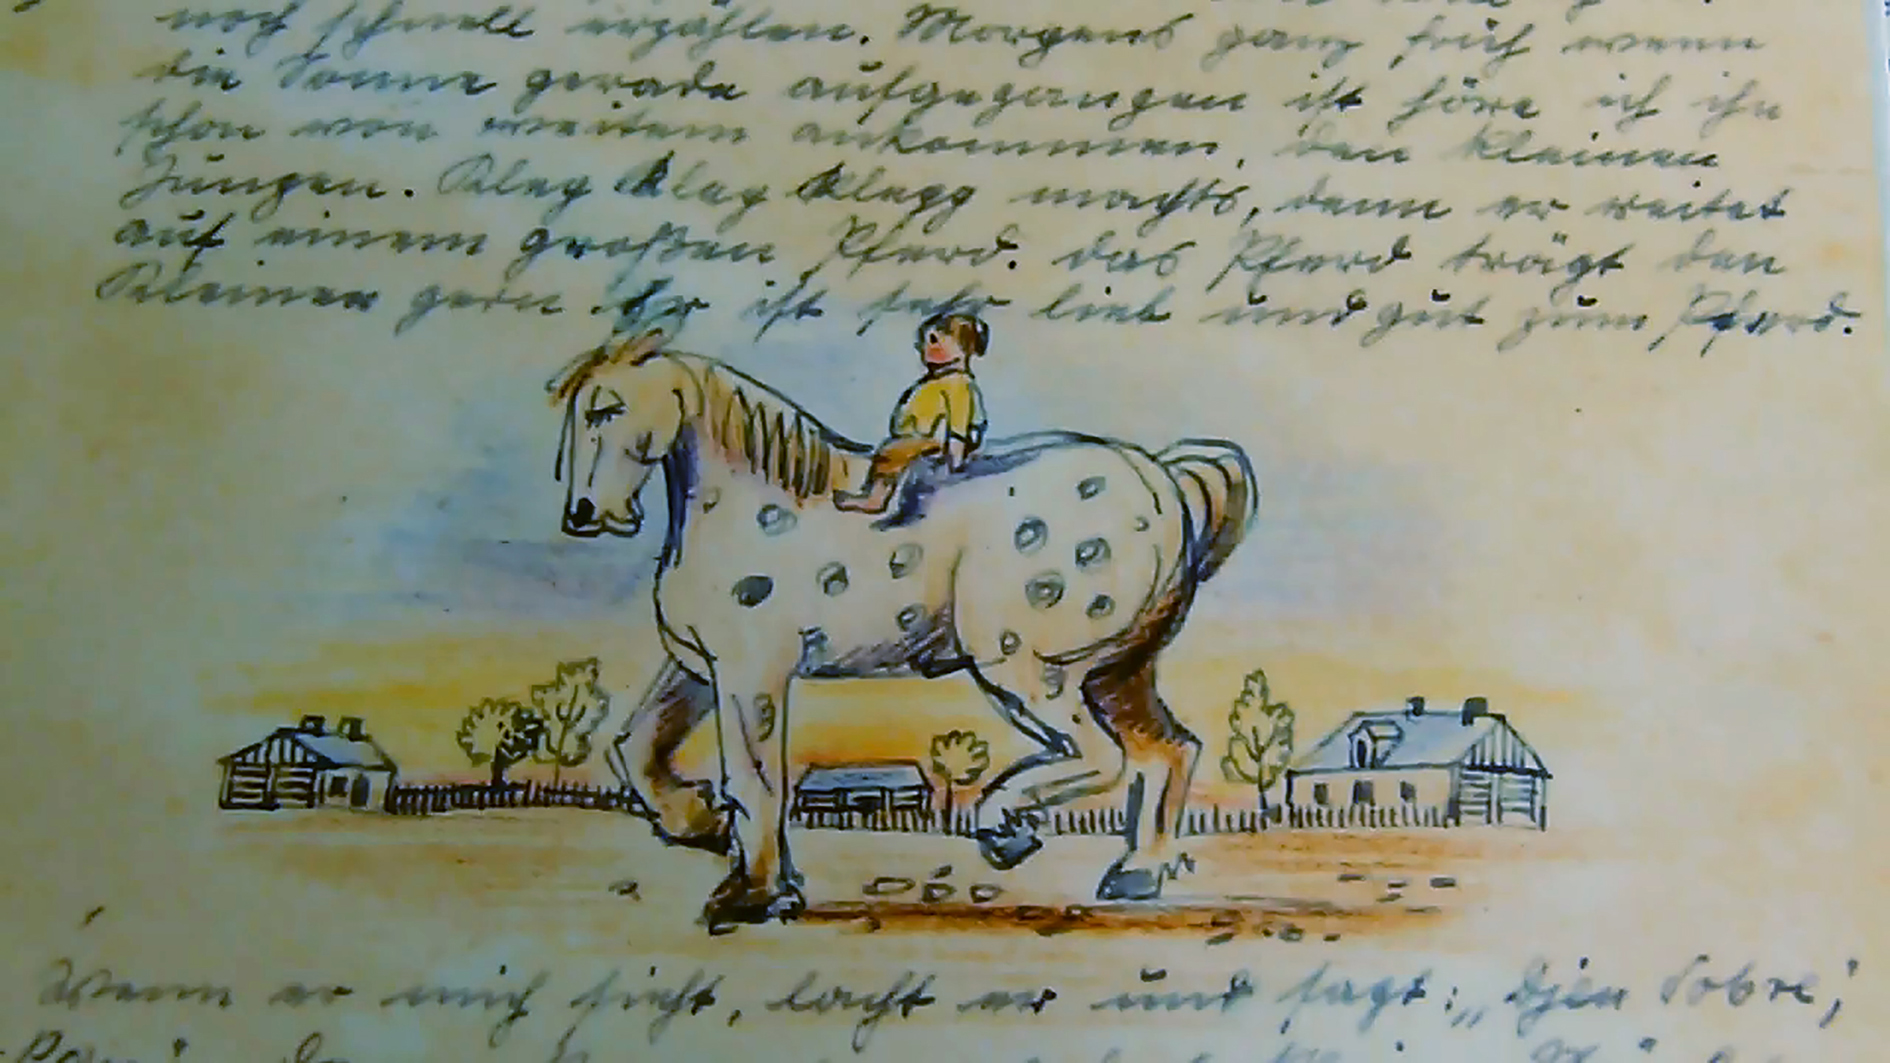 noch schnell erzählen. Morgens ganz früh wenn
die Sonne gerade aufgegangen ist höre ich ihn
schon von weitem ankommen, den kleinen
Jungen. Kleg Kleg Klegg machts, denn er reitet
auf einem großen Pferd. das Pferd trägt den
Kleinen gern. Er ist sehr lieb und gut zum Pferd.
Wenn er mich sieht, lacht er und sagt: „Djen Dobre",